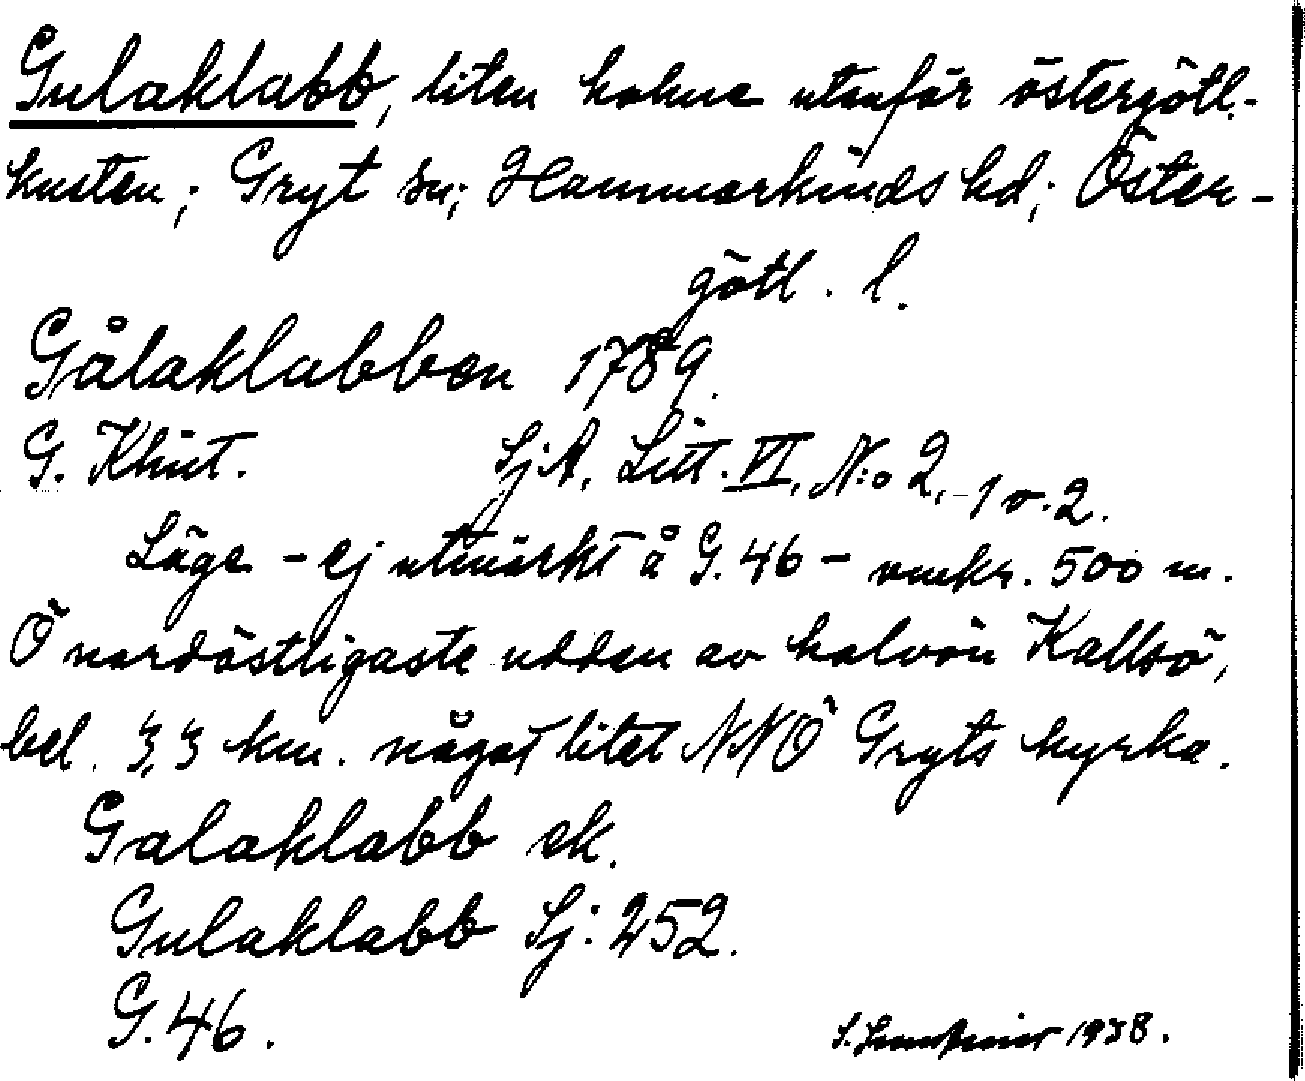 Gulaklabb, liten holme utanför östergötl.-
kusten; Gryt sn; Hammarkinds hd; Öster-
götl. l.
Gålaklabben 1789.
G. Klint. Sj.A. Litt. VI, N:o 2, 1 o. 2.
Läge - ej utmärkt å G. 46 - omkr. 500 m.
Ö nordöstligaste udden av halvön Kallsö,
bel. 3,3 km. något litet NNÖ Gryts kyrka.
Galaklabb ek.
Gulaklabb Sj: 252.
G. 46.
1938.